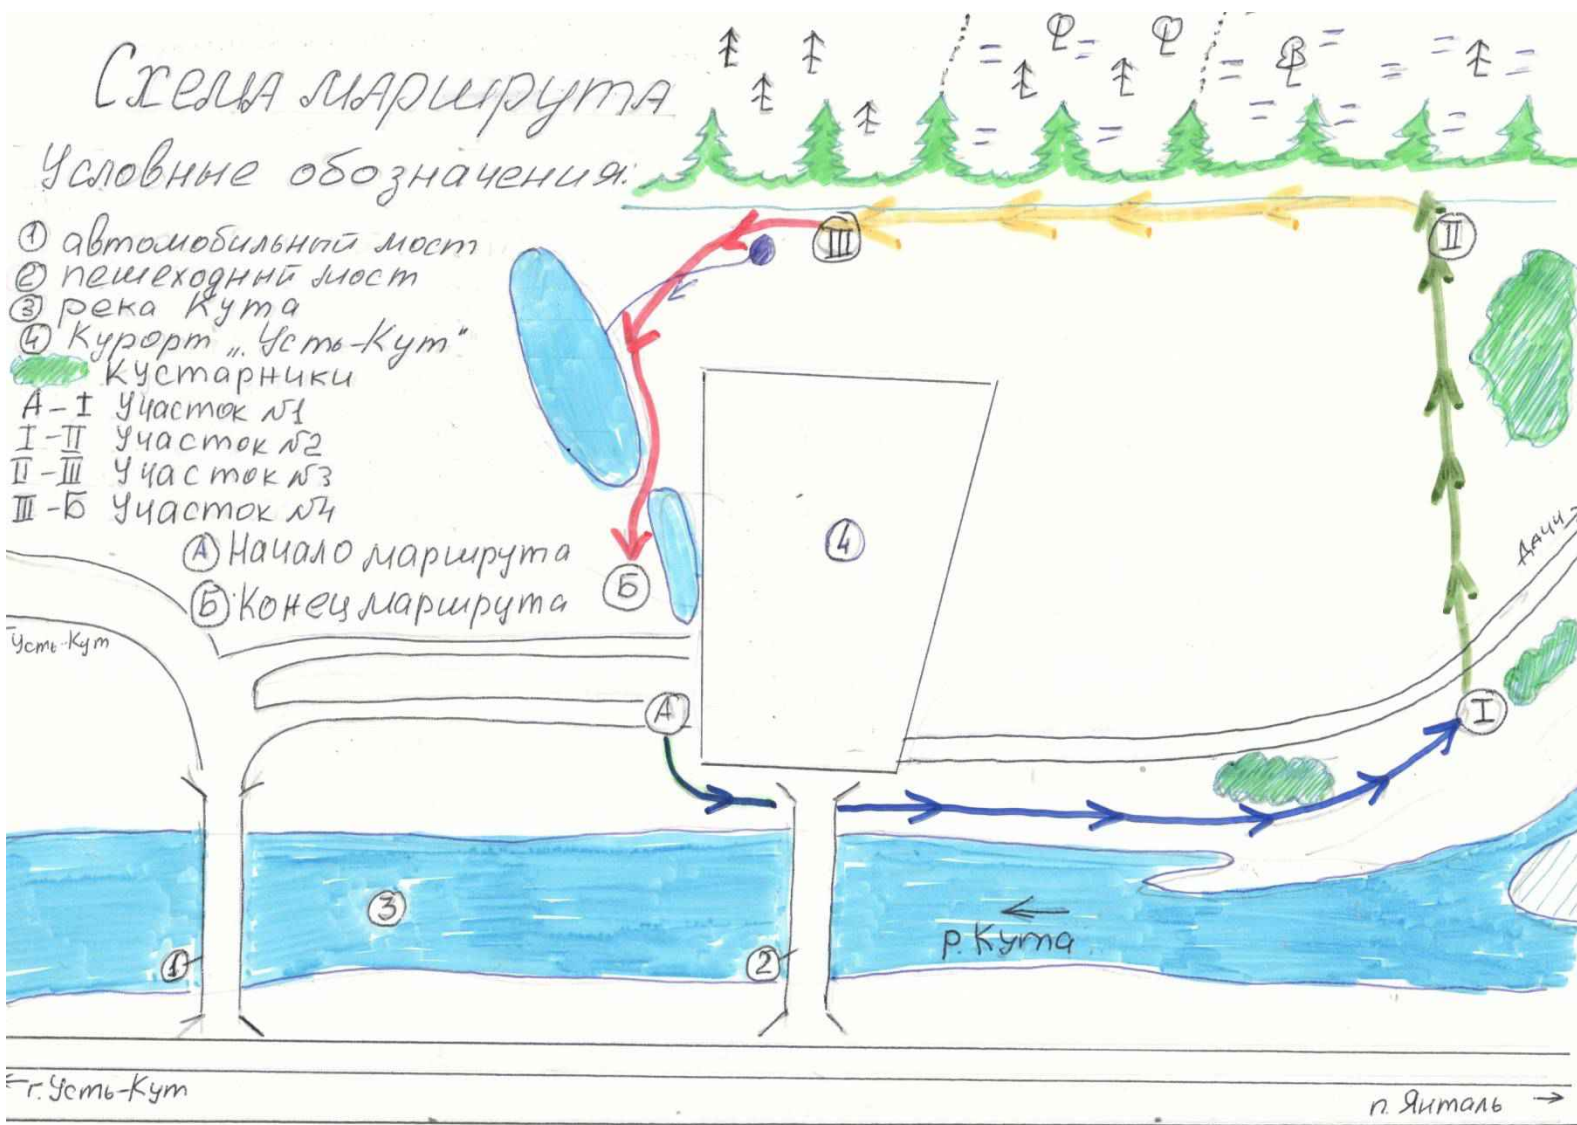 Схема маршрута
Условные обозначения:
① автомобильный мост
② пешеходный мост
③ река Кута
④ Курорт „Усть-Кут"
Кустарники
А-I Участок №1
I-II Участок №2
II-III Участок №3
III-Б Участок №4
А Начало маршрута
Б Конец маршрута
III
II
4
Б
Дачи
Усть-Кут
А
I
3
р. Кута
1
2
г. Усть-Кут
п. Янталь